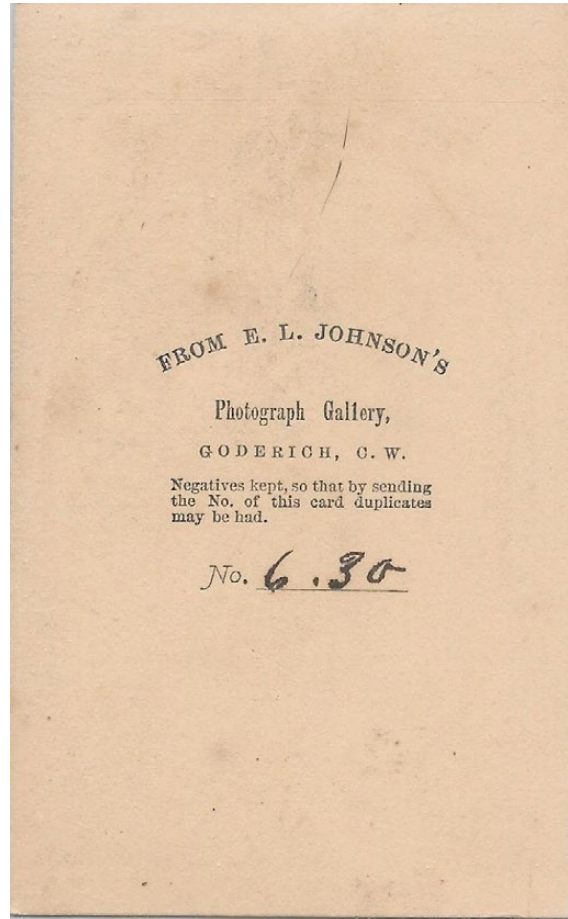 FROM E. L. JOHNSON'S
Photograph Gallery,
GODERICH, C. W.
Negatives kept, so that by sending
the No. of this card duplicates
may be had.
No. 6.30